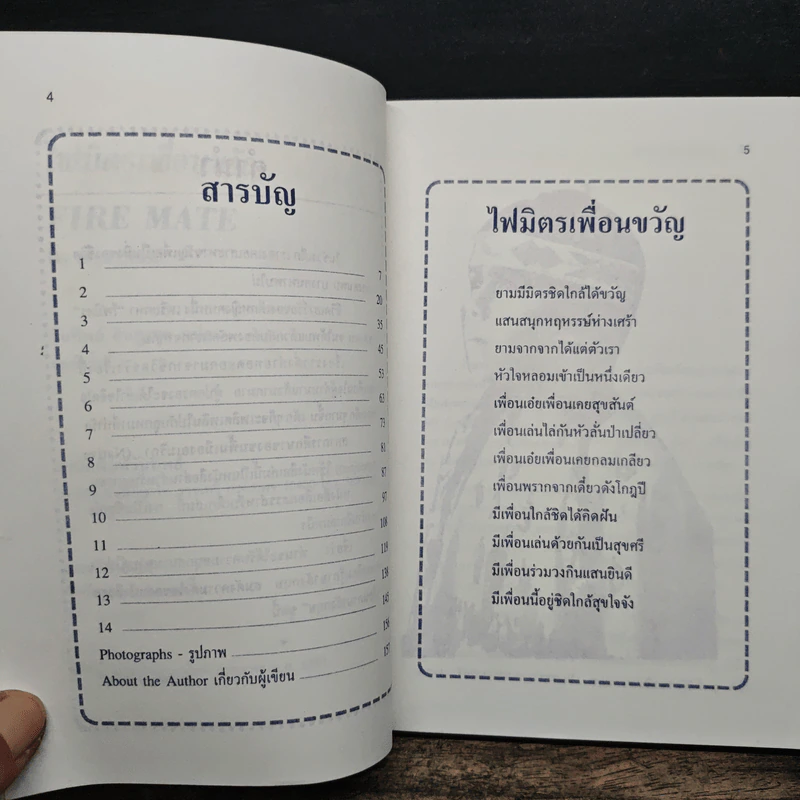 4
สารบัญ
1 7
2 20
3 35
4 45
5 53
6 63
7 73
8 81
9 87
10 97
11 108
12 119
13 138
14 145
Photographs - รูปภาพ 156
About the Author เกี่ยวกับผู้เขียน 157
5
ไฟมิตรเพื่อนขวัญ
ยามมีมิตรชิดใกล้ได้ขวัญ
แสนสนุกหฤหรรษ์ห่างเศร้า
ยามจากจากได้แต่ตัวเรา
หัวใจหลอมเข้าเป็นหนึ่งเดียว
เพื่อนเอ๋ยเพื่อนเคยสุขสันต์
เพื่อนเล่นไล่กันหัวลั่นป่าเปลี่ยว
เพื่อนเอ๋ยเพื่อนเคยกลมเกลียว
เพื่อนพรากจากเดี่ยวดังโกฏปี
มีเพื่อนใกล้ชิดได้คิดฝัน
มีเพื่อนเล่นด้วยกันเป็นสุขศรี
มีเพื่อนร่วมวงกินแสนยินดี
มีเพื่อนนี้อยู่ชิดใกล้สุขใจจัง